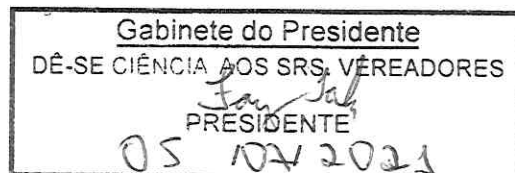 Gabinete do Presidente
DÊ-SE CIÊNCIA AOS SRS. VEREADORES
PRESIDENTE
05 2021